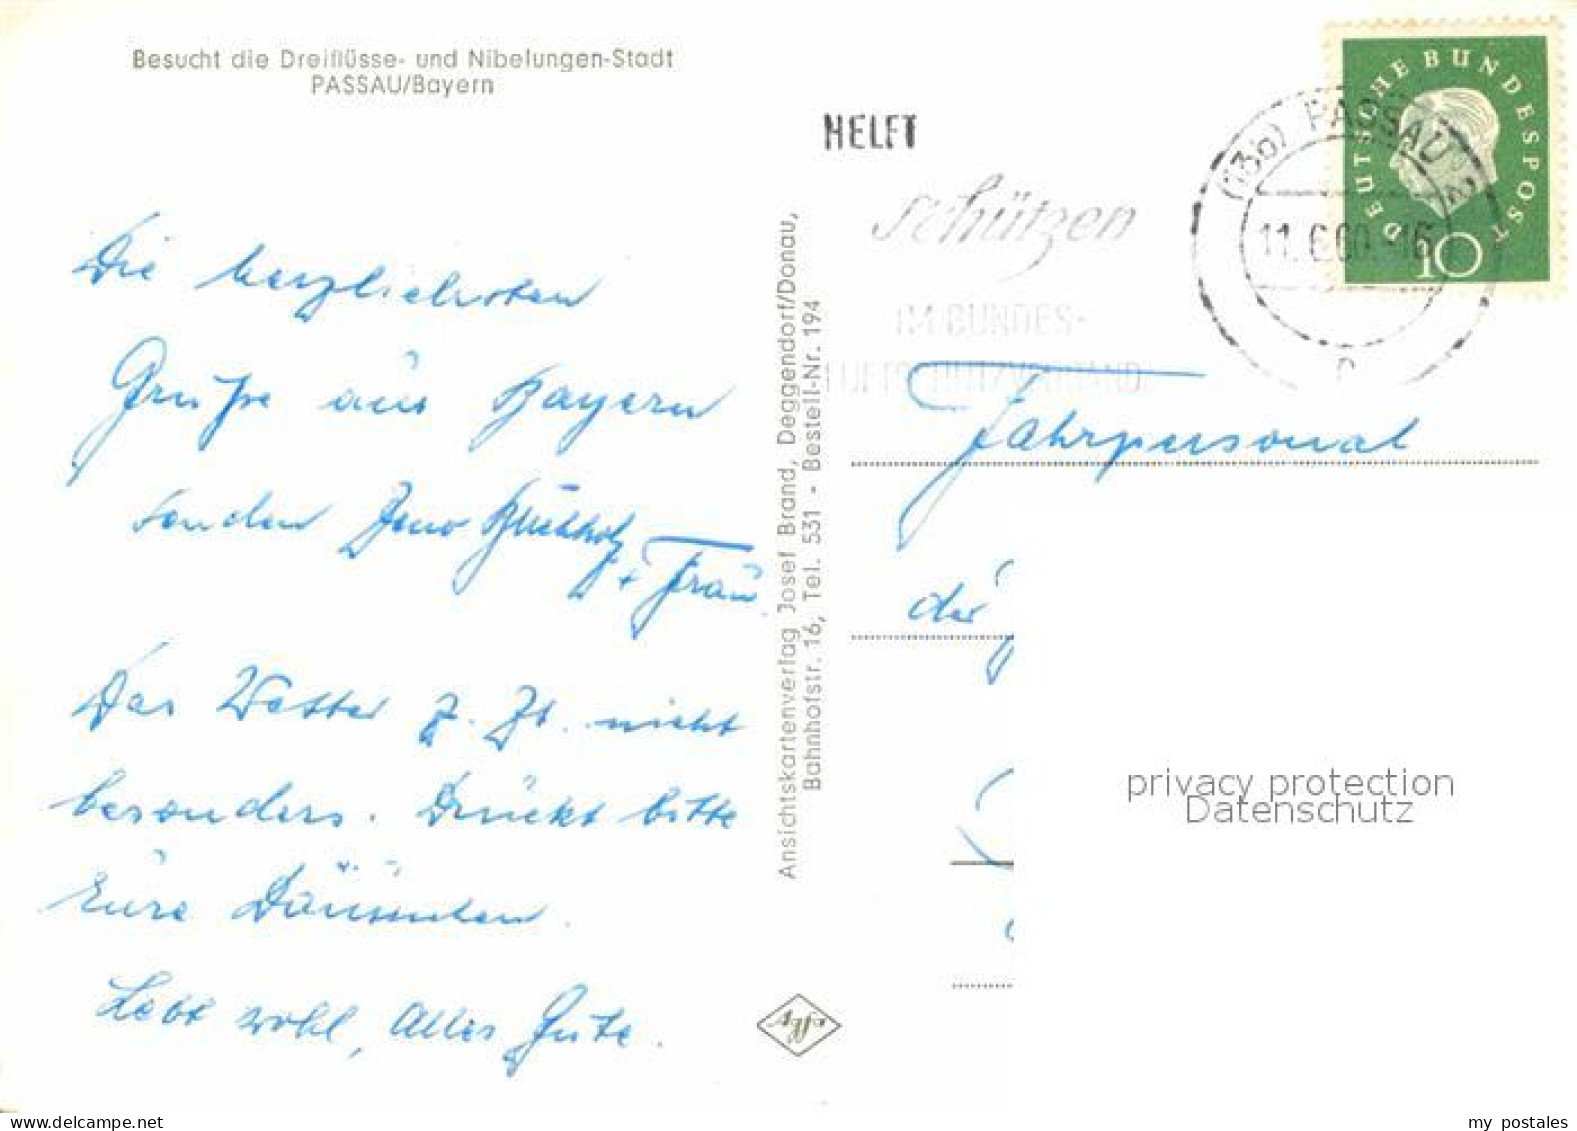 Besucht die Dreiflüsse- und Nibelungen-Stadt
PASSAU/Bayern
Die herzlichsten
Grüße aus Bayern
senden Buchholz
+ Frau
Das Wetter z. Zt. nicht
besonders. Drückt bitte
Eure Däumchen.
Lebt wohl, Alles Gute.
Ansichtskartenverlag Josef Brand, Deggendorf/Donau,
Bahnhofstr. 16, Tel. 531 - Bestell-Nr. 194
HELFT
schützen
IM BUNDES-
LUFTSCHUTZVERBAND
(13b) PASSAU 2
11.6.60.-16
DEUTSCHE BUNDESPOST
10
Fahrpersonal
der
privacy protection
Datenschutz
www.delcampe.net
my_postales